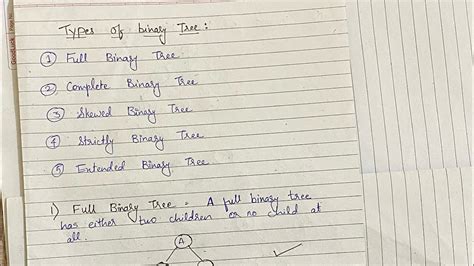 Types of binary Tree :
① Full Binary Tree
② Complete Binary Tree
③ Skewed Binary Tree
④ Strictly Binary Tree
⑤ Extended Binary Tree
1) Full Binary Tree - A full binary tree
has either two children or no child at
all.
A